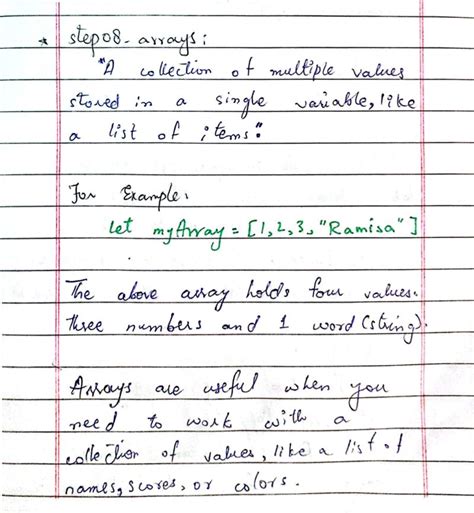 * step08- arrays:
"A collection of multiple values
stored in a single variable, like
a list of items".
For Example,
let myArray = [1,2,3,"Ramisa"]
The above array holds four values.
three numbers and 1 word (string).
Arrays are useful when you
need to work with a
collection of values, like a list of
names, scores, or colors.